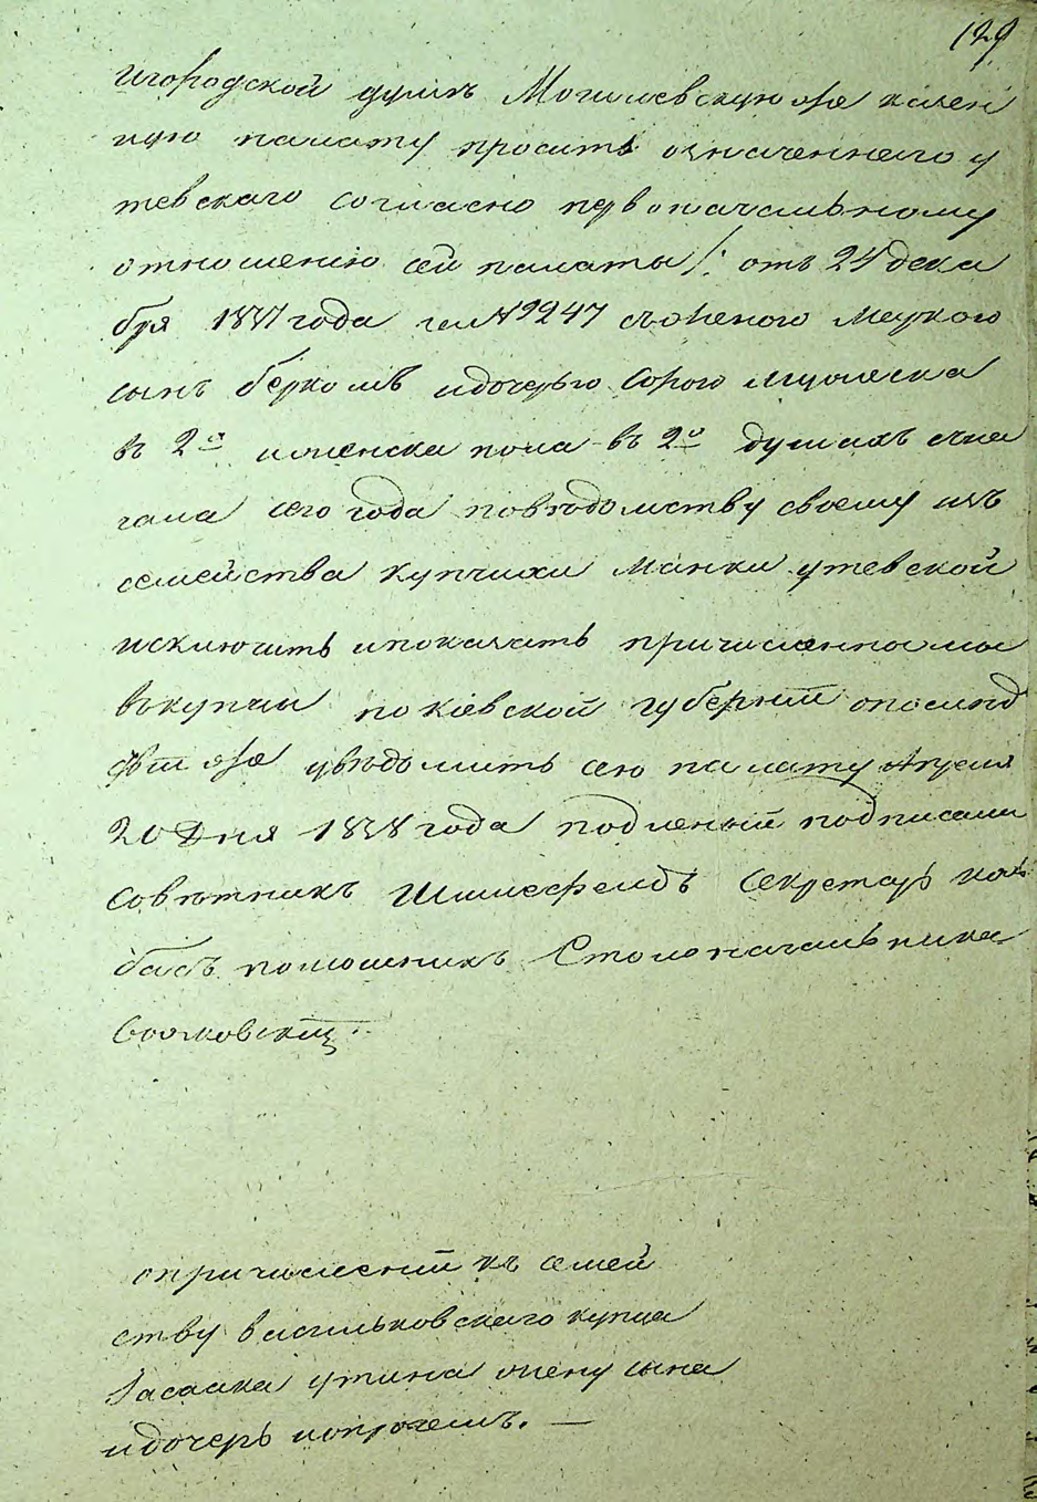 129
игородской думѣ Могилевскую же казен
ную палату просить означеннаго У
тевскаго согласно первоначальному
отношенію сей палаты /: отъ 24 дека
бря 1837 года за №9247 съ женою Меркою
сынъ Беркомъ идочерью Сорою мужеска
въ 2хъ иженска пола въ 2хъ душахъ сна
чала сего года повѣдомству своему изъ
семейства купчихи Манки Утевской
исключить ипоказать причисленнами
вкупцы по кіевской губерніи опослѣд
ствіи же увѣдомить сею палату Апреля
20 Дня 1838 года подленый подписали
Совѣтникъ Секретарь
помошникъ Столоначальника
опричисленіи къ семей
ству васильковскаго купца
Іасаака утина жену сына
идочерь ипрочемъ. —